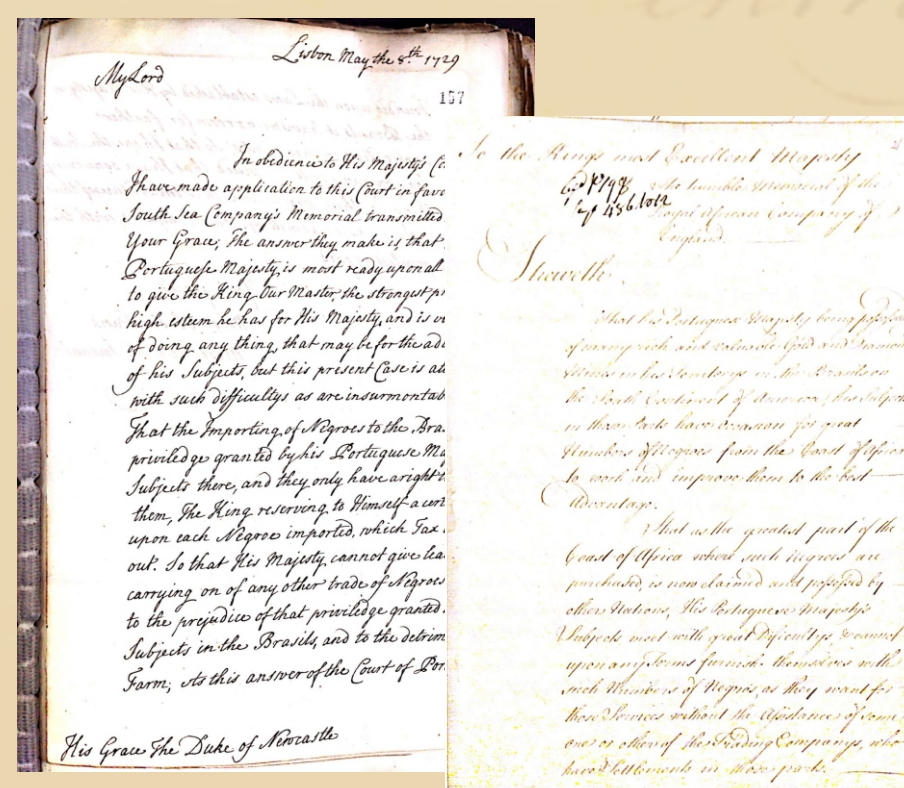 Lisbon May the 8.th 1729
My Lord
157
In obedience to His Majesty's Co
I have made application to this Court in favo
South Sea Company's Memorial transmitted
Your Grace, The answer they make is that
Portuguese Majesty, is most ready upon all
to give the King Our Master the strongest pr
high esteem he has for His Majesty, and is
of doing any thing, that may be for the ad
of his Subjects, but this present Case is at
with such difficultys as are insurmontab
That the Importing of Negroes to the Bra
priviledge granted by his Portuguese Ma
Subjects there, and they only have a right
them, The King reserving to Himself a cert
upon each Negroe imported, which Tax
out. So that His Majesty, cannot give lea
carrying on of any other trade of Negroes
to the prejudice of that priviledge granted
Subjects in the Brasils, and to the detrim
Farm; As this answer of the Court of Por
His Grace The Duke of Newcastle
To the Kings most Excellent Majesty
The humble Memorial of the
Royal African Company of
England.
Sheweth
That his Portuguese Majesty being possess
of many rich and valuable Gold and Diamon
Mines in his Territorys in the Brazils on
the South Continent of America, his Subjects
in those Parts have occasion for great
Numbers of Negroes from the Coast of Africa
to work and improve them to the best
Advantage.
That as the greatest part of the
Coast of Africa where such negroes are
purchased, is now claimed and possessed by
other Nations, His Portuguese Majesty's
Subjects meet with great Difficultys & cannot
upon any Terms furnish themselves with
such Numbers of Negros, as they want for
those Services without the Assistance of some
one or other of the Trading Companys, who
have Settlements in those parts.